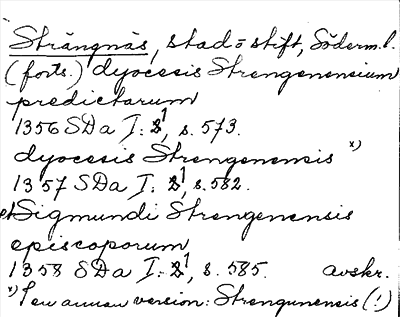 Strängnäs, stad o stift, Söderm.l.
(forts.) dyocesis Strengenensium
predictarum
1356 SDa I: 1, s. 573.
dyocesis Strengenensis x)
1357 SDa I: 1, s. 582.
et Sigmundi Strengenensis
episcoporum
1358 SDa I: 1, s. 585. avskr.
x) I en annan version: Strengunensis (!)